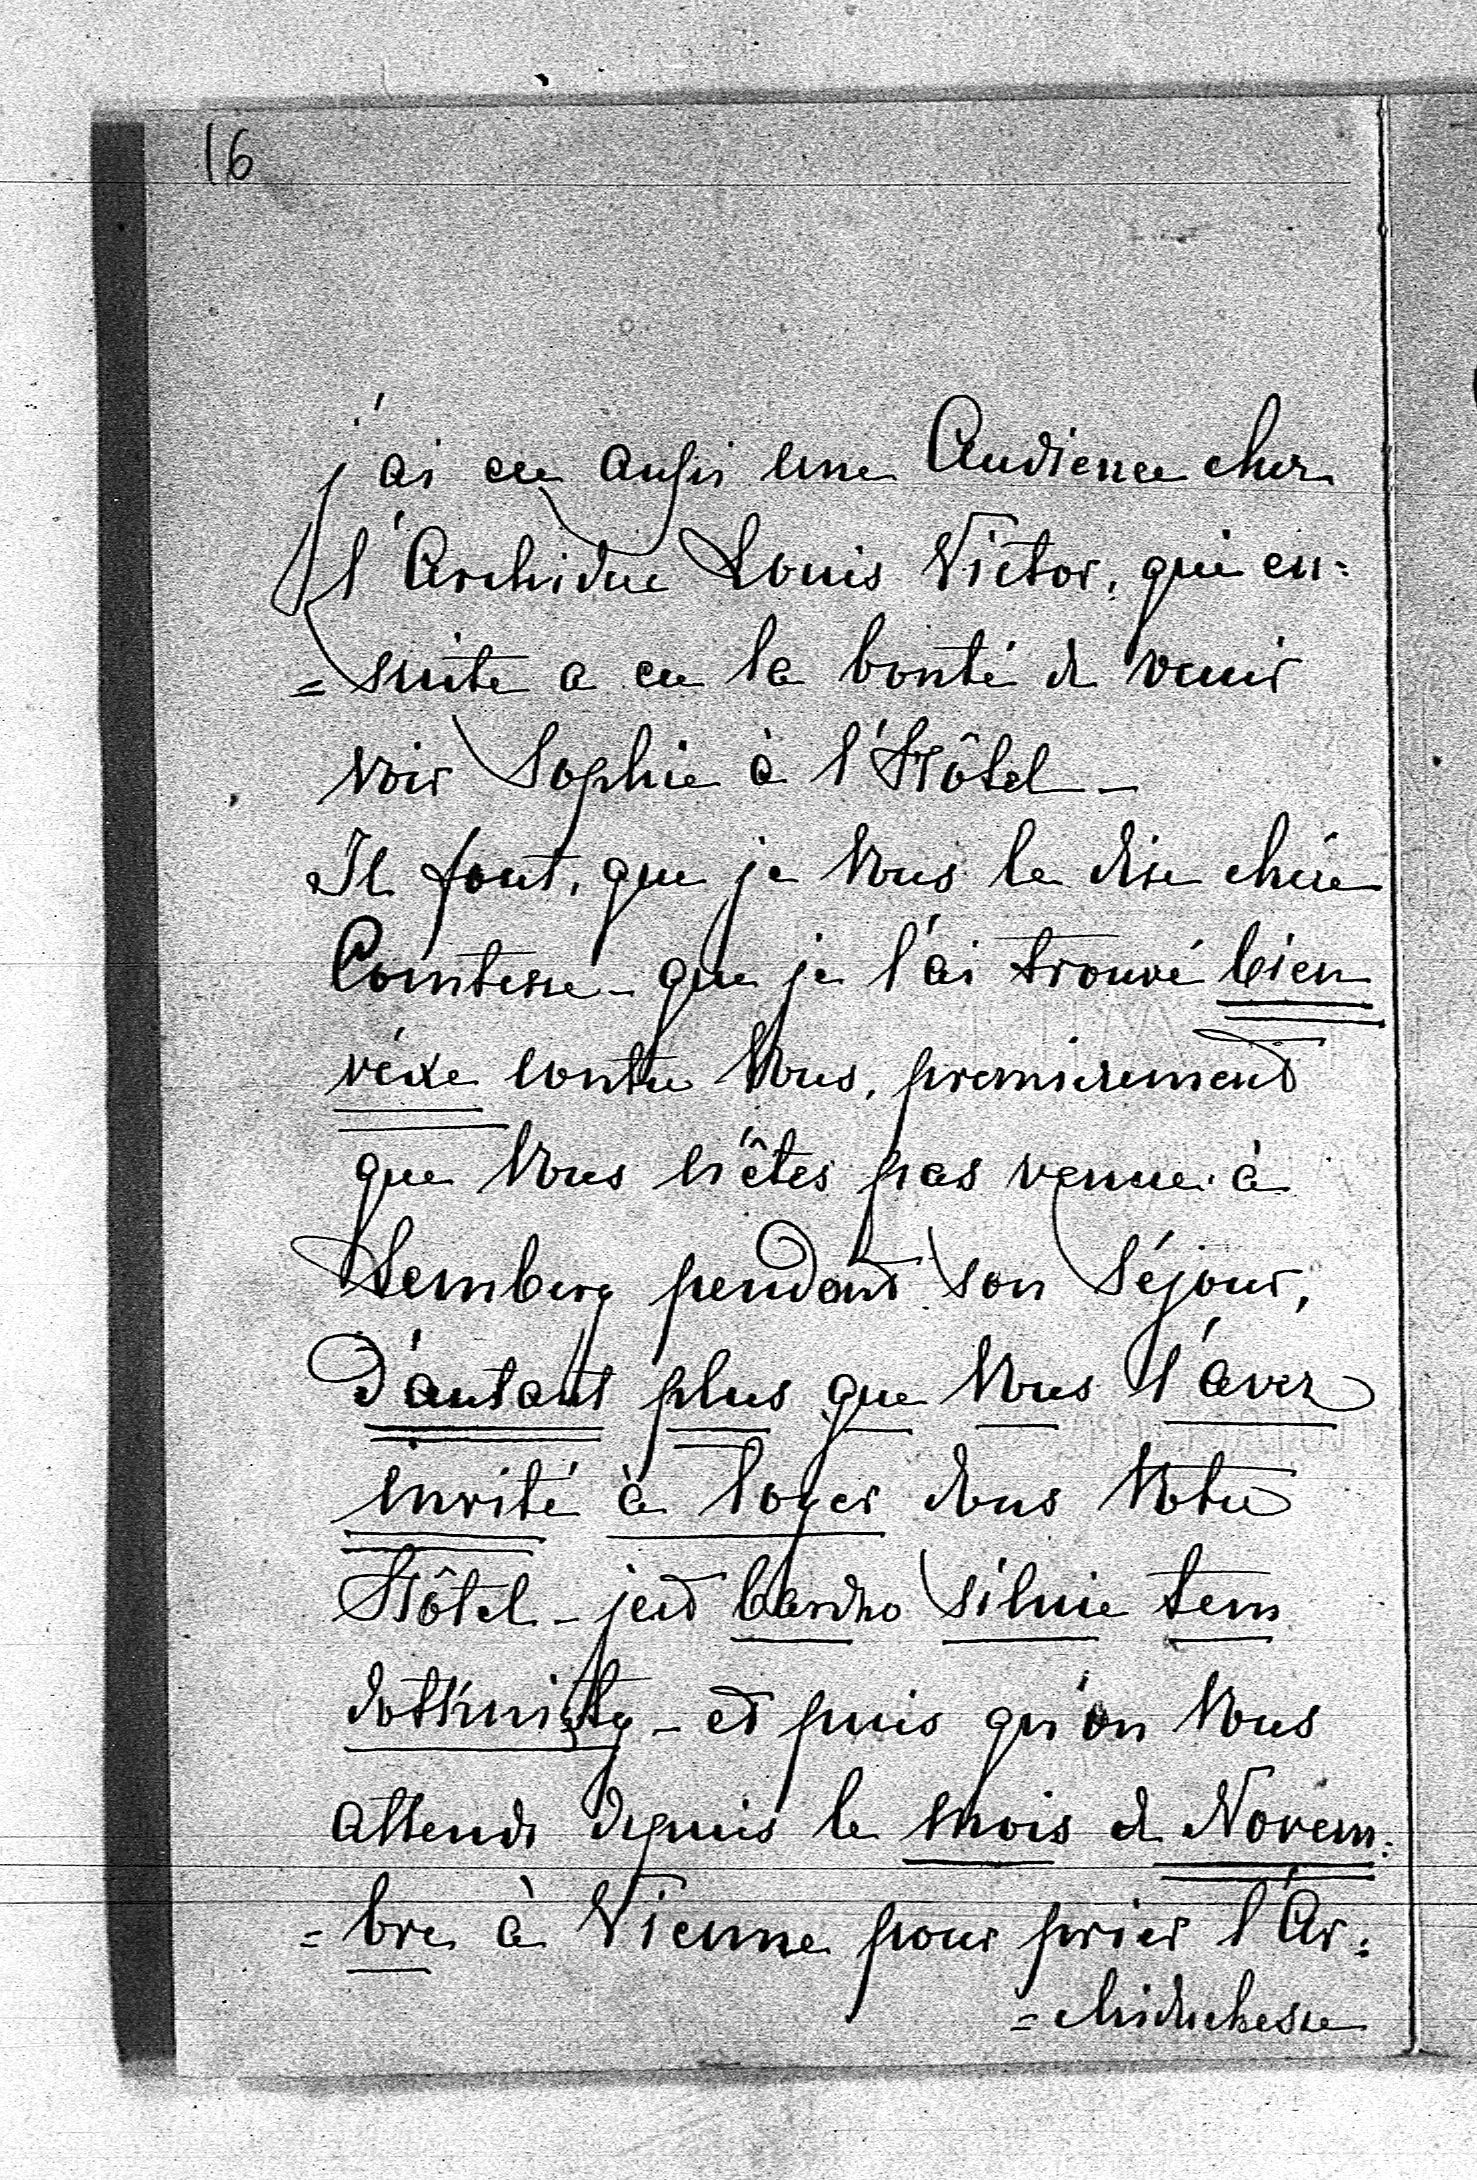 16
j'ai eu aussi une Audience chez
l'Archiduc Louis Victor, qui en=
=suite a eu la bonté de venir
voir Sophie à l'Hôtel_
Il faut, que je Vous le dise chére
Comtesse_ que je l'ai trouvé bien
véxé contre Vous, premierement
que Vous n'êtes pas venue à
Lemberg pendant son Séjour,
D'autant plus que Vous l'avez
invité à loger dans Votre
Hôtel_ jest bardzo silnie tem
dotknięty_ et puis qu'on Vous
attends depuis le mois de Novem=
=bre à Vienne pour prier l'Ar=
=chiduchesse